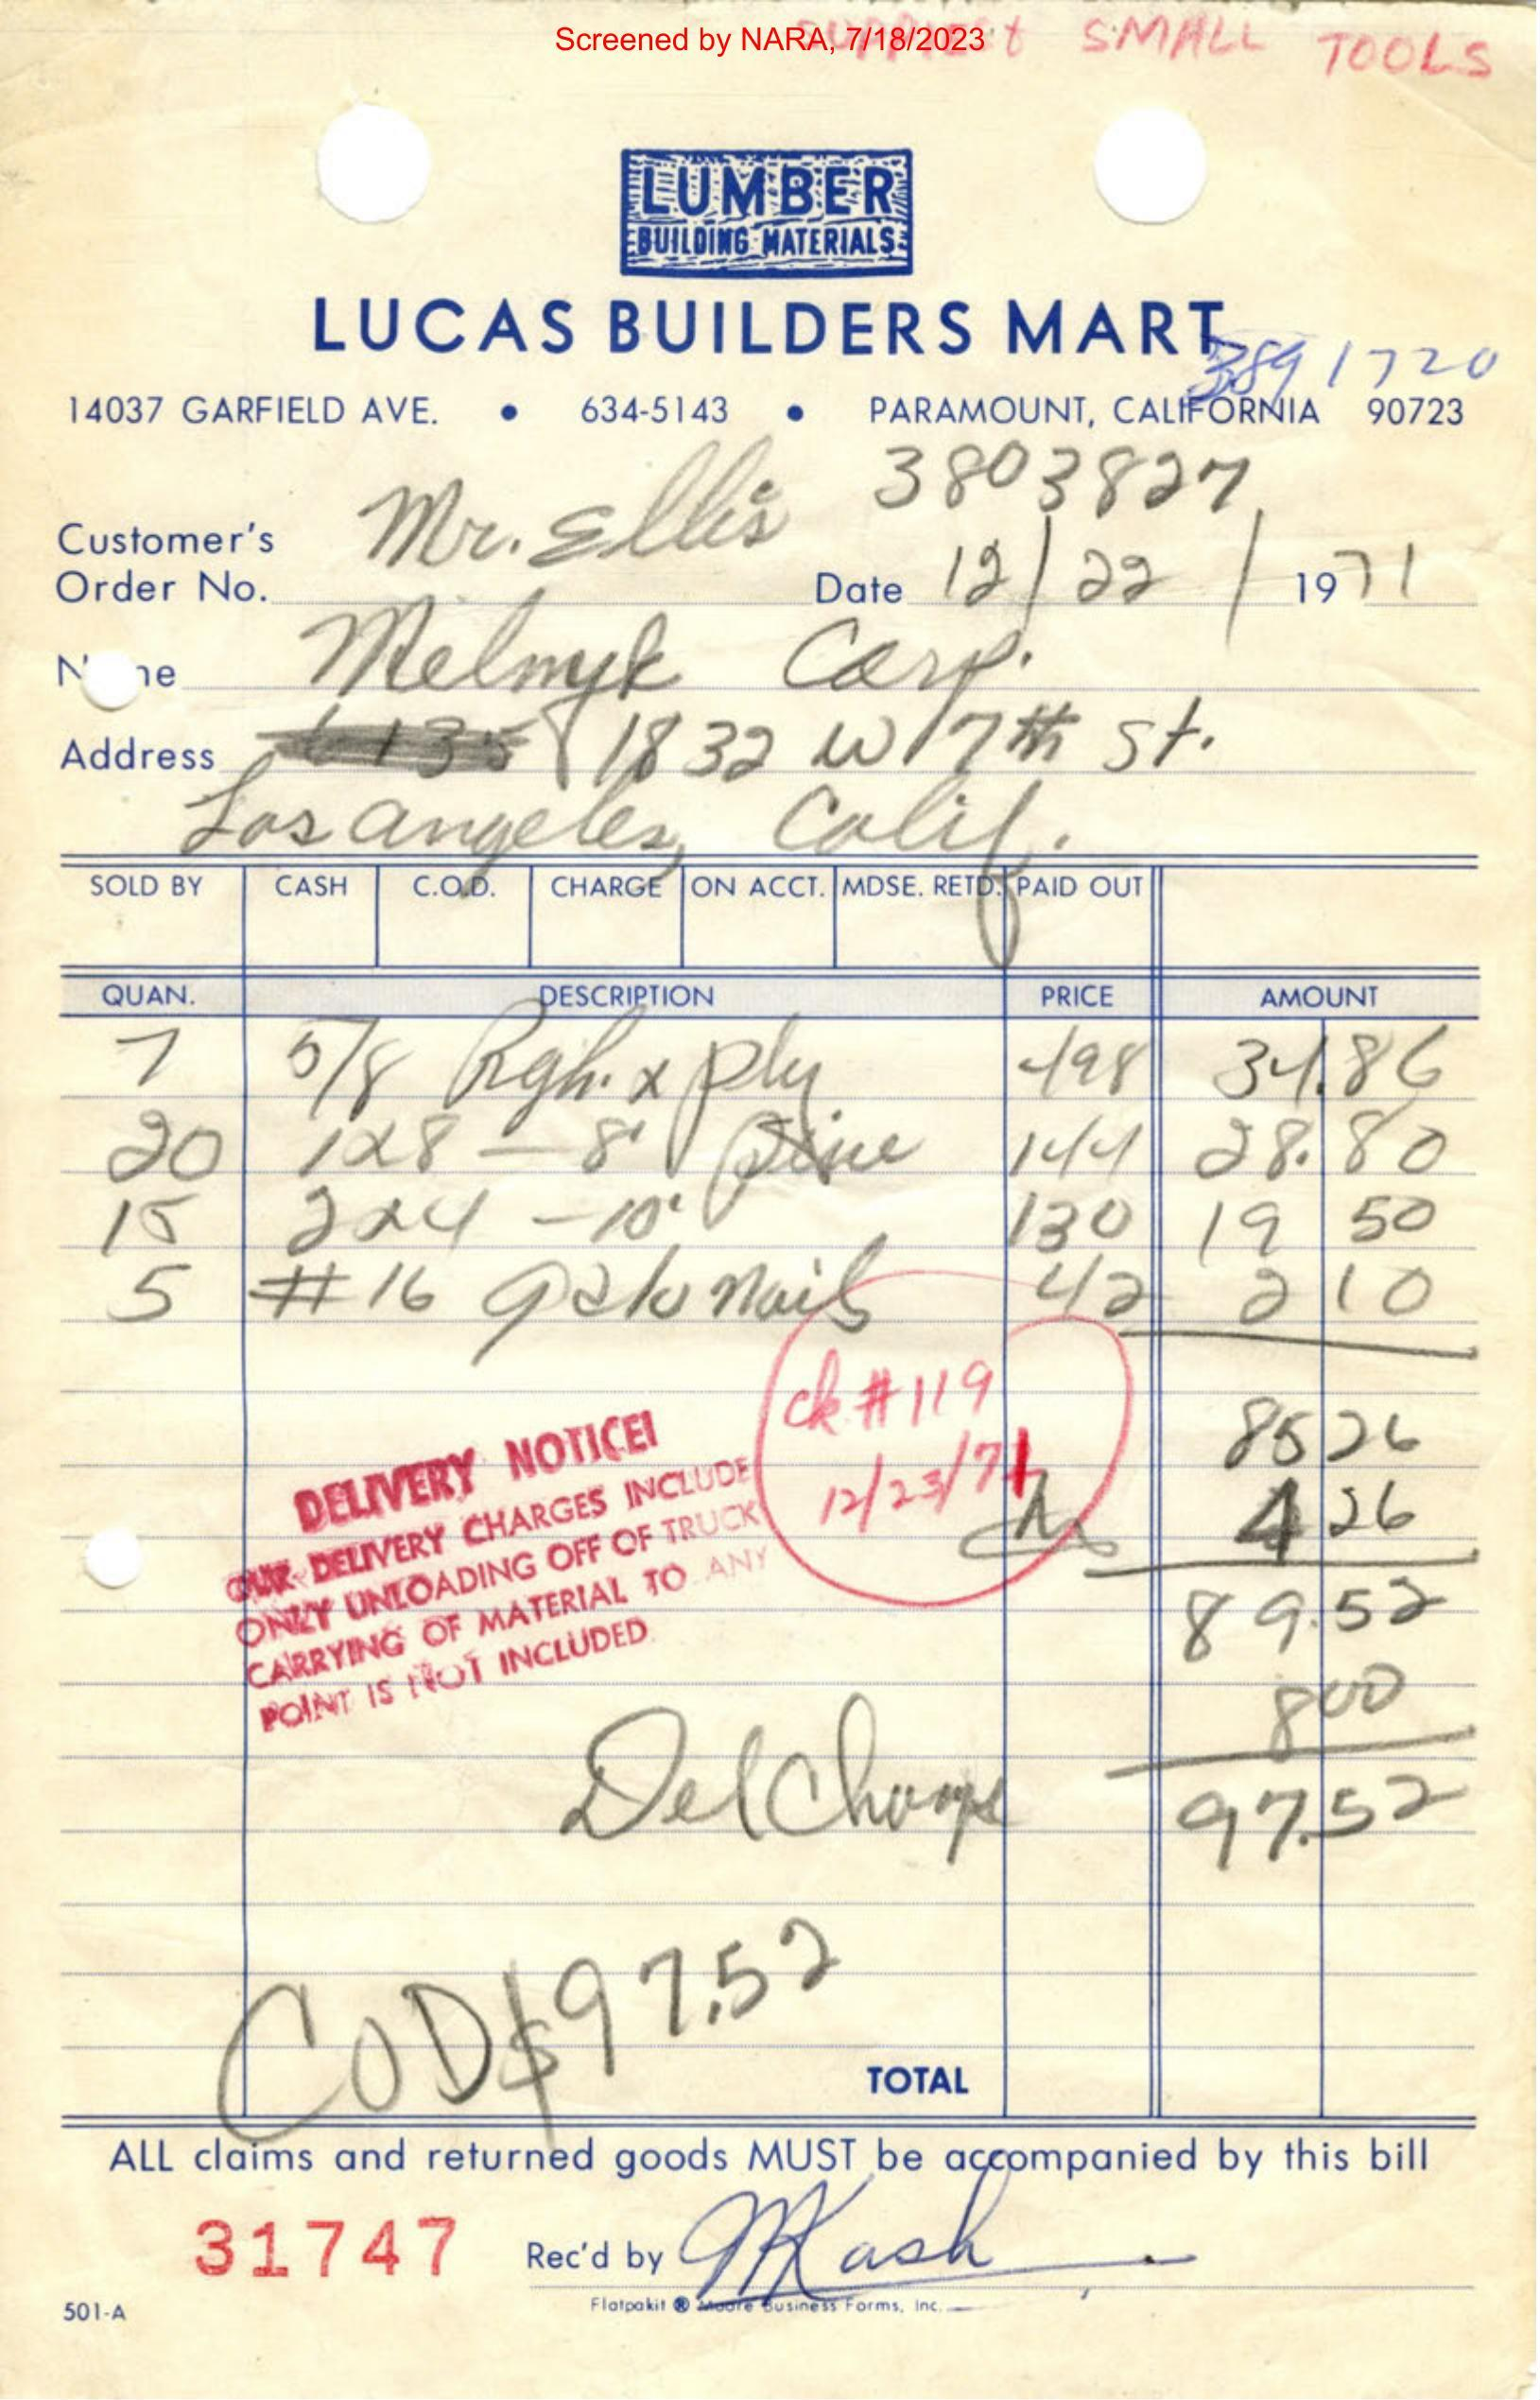 Screened by NARA, 7/18/2023
SUPPLIES & SMALL TOOLS
LUMBER
BUILDING MATERIALS
LUCAS BUILDERS MART
3891720
14037 GARFIELD AVE. • 634-5143 • PARAMOUNT, CALIFORNIA 90723
3803827
Customer's
Order No. Mr. Ellis Date 12/22/1971
Name Melnyk Corp.
Address 1832 W 7th St.
Los Angeles, Calif.
SOLD BY CASH C.O.D. CHARGE ON ACCT. MDSE. RETD. PAID OUT
QUAN. DESCRIPTION PRICE AMOUNT
7 5/8 Rgh. x ply 498 34.86
20 1x8 – 8' pine 144 28.80
15 2x4 – 10' 130 19 50
5 #16 galv nails 42 2 10
ck #119
12/23/71
85 26
4 26
89.52
8 00
97.52
DELIVERY NOTICE!
OUR DELIVERY CHARGES INCLUDE
ONLY UNLOADING OFF OF TRUCK
CARRYING OF MATERIAL TO ANY
POINT IS NOT INCLUDED
Del Charge
COD $97.52
TOTAL
ALL claims and returned goods MUST be accompanied by this bill
31747 Rec'd by MKash
501-A Flatpakit ® Moore Business Forms, Inc.